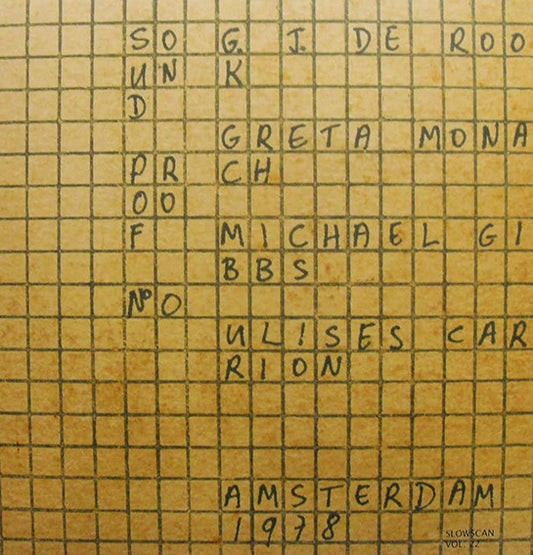 SO
UN
D
PR
OO
F
Nº O
G. J. DE ROO
K
GRETA MONA
CH
MICHAEL GI
BBS
ULISES CAR
RION
AMSTERDAM
1978
SLOWSCAN
VOL. 22